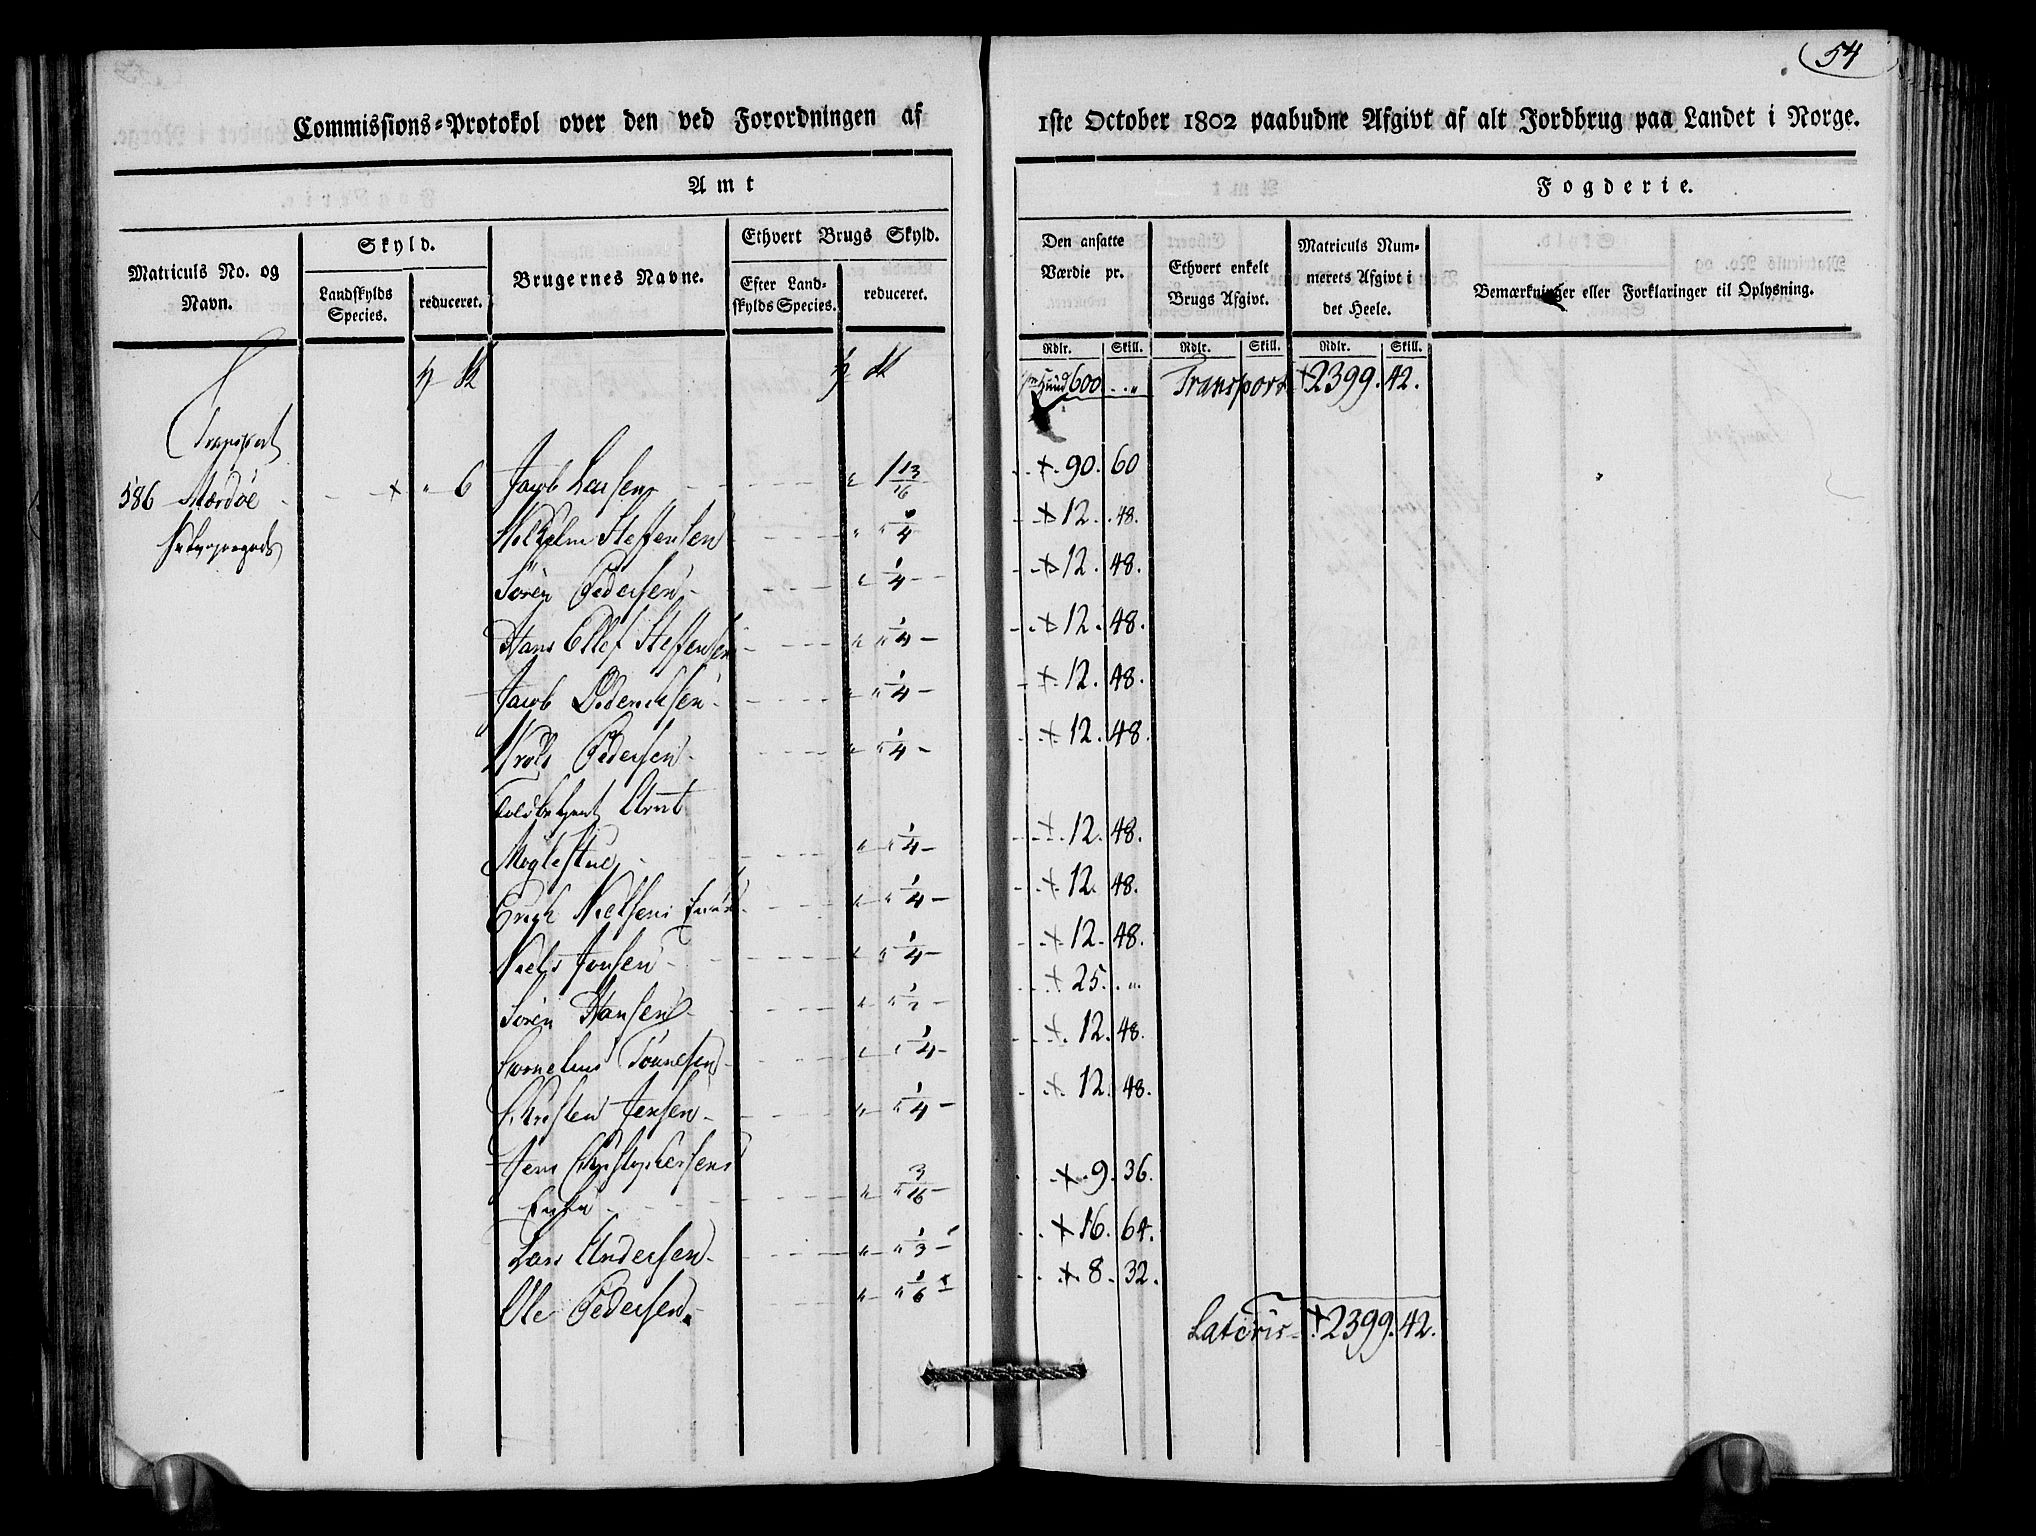 54
Commissions-Protokol over den ved Forordningen af 1ste October 1802 paabudne Afgivt af alt Jordbrug paa Landet i Norge.
Amt Fogderie.
Matriculs No. og Navn.
Skyld.
Landskylds Species.
reduceret.
Brugernes Navne.
Ethvert Brugs Skyld.
Efter Landskylds Species.
reduceret.
Den ansatte Værdie pr.
Ethvert enkelt Brugs Afgivt.
Matriculs Nummerets Afgivt i det Heele.
Bemærkninger eller Forklaringer til Oplysning.
Rdlr. Skill. Rdlr. Skill. Rdlr. Skill.
600 Transport 2399. 42.
Transport
586 Mærdøe 6 Jacob Larsen 1 13/16 90. 60
Wilhelm Steffensen 1/4 12. 48.
Søren Pedersen 1/4 12. 48.
Hans Ellef Steffensen 1/4 12. 48.
Jacob Diderichsen 1/4 12. 48.
Niels Pedersen 1/4 12. 48.
Toldbetjent
Møglestue 1/4 12. 48.
Erich Nielsens Enke 1/4 12. 48.
Niels Jonsen 1/4 12. 48.
Søren Hansen 1/2 25. "
Cornelius Tønnesen 1/4 12. 48.
Christen Jensen 1/4 12. 48.
Jens Christophersens
Enke 3/16 9. 36.
Lars Andersen 1/3 16. 64.
Ole Pedersen 1/6 8. 32.
Lateris 2399. 42.